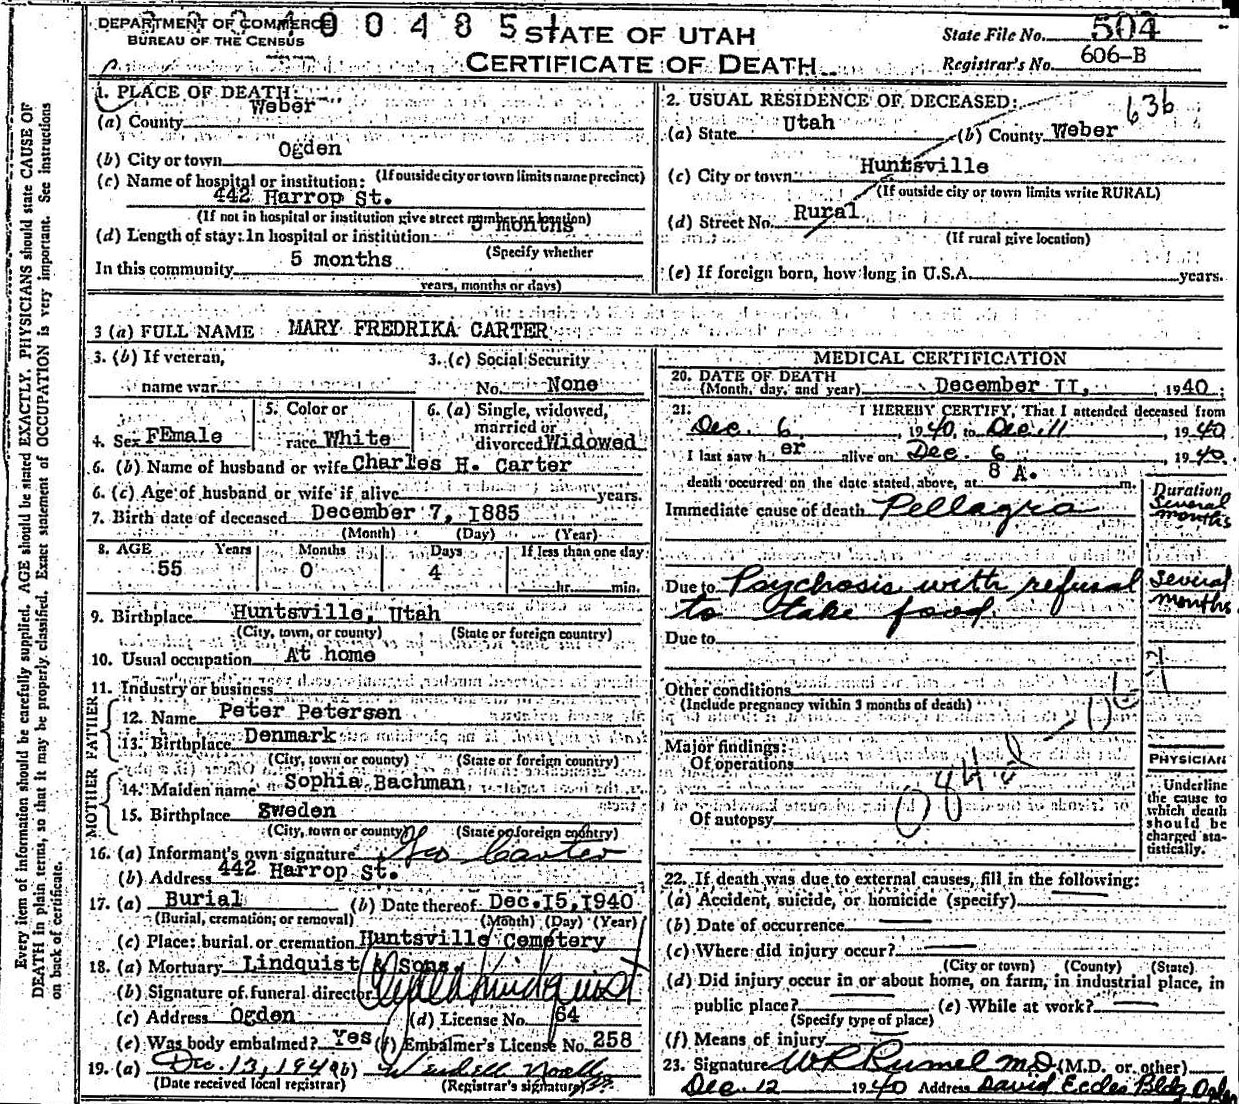 DEPARTMENT OF COMMERCE
BUREAU OF THE CENSUS
0 0 4 8 5
STATE OF UTAH
CERTIFICATE OF DEATH
State File No. 504
Registrar's No. 606-B
Every item of information should be carefully supplied. AGE should be stated EXACTLY. PHYSICIANS should state CAUSE OF
DEATH in plain terms, so that it may be properly classified. Exact statement of OCCUPATION is very important. See instructions
on back of certificate.
1. PLACE OF DEATH:
(a) County Weber
(b) City or town Ogden
(If outside city or town limits name precinct)
(c) Name of hospital or institution:
442 Harrop St.
(If not in hospital or institution give street number or location)
(d) Length of stay: In hospital or institution 5 months
(Specify whether
In this community 5 months
years, months or days)
2. USUAL RESIDENCE OF DECEASED:
636
(a) State Utah (b) County Weber
(c) City or town Huntsville
(If outside city or town limits write RURAL)
(d) Street No. Rural
(If rural give location)
(e) If foreign born, how long in U.S.A. years.
3 (a) FULL NAME MARY FREDRIKA CARTER
3. (b) If veteran,
name war
3. (c) Social Security
No. None
4. Sex FEmale
5. Color or
race White
6. (a) Single, widowed,
married or
divorced Widowed
6. (b) Name of husband or wife Charles H. Carter
6. (c) Age of husband or wife if alive years.
7. Birth date of deceased December 7, I885
(Month) (Day) (Year)
8. AGE Years Months Days If less than one day
55 0 4 hr. min.
9. Birthplace Huntsville, Utah
(City, town, or county) (State or foreign country)
10. Usual occupation At home
11. Industry or business
FATHER
12. Name Peter Petersen
13. Birthplace Denmark
(City, town or county) (State or foreign country)
MOTHER
14. Maiden name Sophia Bachman
15. Birthplace Sweden
(City, town or county) (State or foreign country)
16. (a) Informant's own signature Geo Carter
(b) Address 442 Harrop St.
17. (a) Burial (b) Date thereof Dec. I5, I940
(Burial, cremation, or removal) (Month) (Day) (Year)
(c) Place: burial or cremation Huntsville Cemetery
18. (a) Mortuary Lindquist & Sons
(b) Signature of funeral director Lindquist
(c) Address Ogden (d) License No. 64
(e) Was body embalmed? Yes (f) Embalmer's License No. 258
19. (a) Dec. 13, 1940 (b) Wendell
(Date received local registrar) (Registrar's signature)
MEDICAL CERTIFICATION
20. DATE OF DEATH
(Month, day, and year) December II, 1940
21. I HEREBY CERTIFY, That I attended deceased from
Dec. 6, 1940, to Dec. 11, 1940
I last saw h er alive on Dec. 6, 1940
death occurred on the date stated above, at 8 A. m.
Duration
Immediate cause of death Pellagra Several
months
Due to Psychosis with refusal Several
to take food months
Due to
Other conditions
(Include pregnancy within 3 months of death)
Major findings:
Of operations
Of autopsy
PHYSICIAN
Underline
the cause to
which death
should be
charged sta-
tistically.
22. If death was due to external causes, fill in the following:
(a) Accident, suicide, or homicide (specify)
(b) Date of occurrence
(c) Where did injury occur?
(City or town) (County) (State)
(d) Did injury occur in or about home, on farm, in industrial place, in
public place? (e) While at work?
(Specify type of place)
(f) Means of injury
23. Signature W R Rumel M.D. (M.D. or other)
Dec. 12 1940 Address David Eccles Bldg Ogden